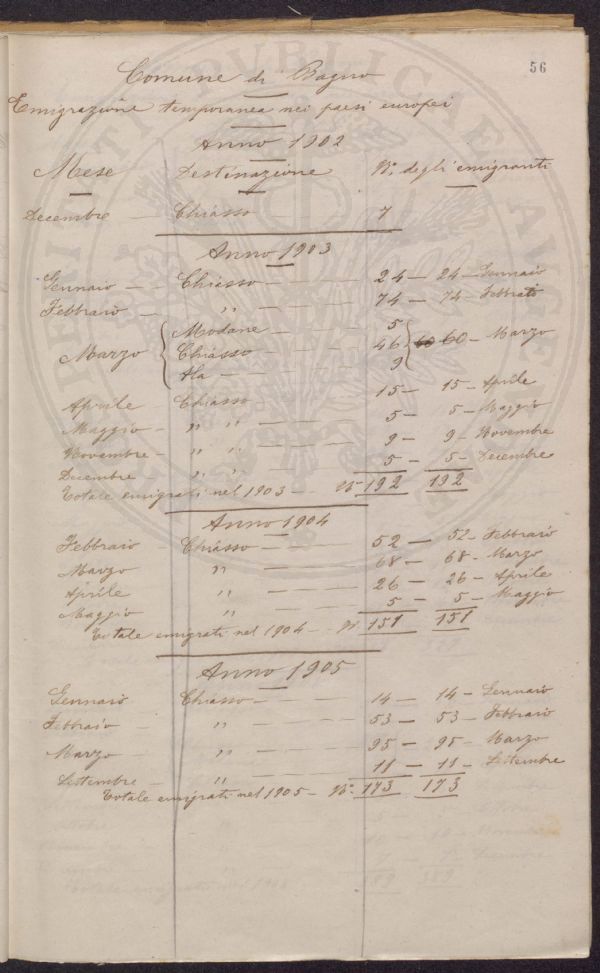 56
Comune di Bagno
Emigrazione temporanea nei paesi europei
Anno 1902
Mese Destinazione N. degli emigranti
Decembre — Chiasso — 7
Anno 1903
Gennaio — Chiasso — 24 — 24 — Gennaio
Febbraio — " — 74 — 74 — Febbraio
Modane — 5
Marzo { Chiasso — 46 } 60 — Marzo
Ala — 9
Aprile — Chiasso 15 — 15 — Aprile
Maggio — " " — 5 — 5 — Maggio
Novembre — " " — 9 — 9 — Novembre
Decembre " " — 5 — 5 — Decembre
Totale emigrati nel 1903 — N. 192 192
Anno 1904
Febbraio — Chiasso — 52 — 52 — Febbraio
Marzo " — 68 — 68 — Marzo
Aprile " — 26 — 26 — Aprile
Maggio " — 5 — 5 — Maggio
Totale emigrati nel 1904 — N. 151 151
Anno 1905
Gennaio Chiasso — 14 — 14 — Gennaio
Febbraio — " — 53 — 53 — Febbraio
Marzo — " — 95 — 95 — Marzo
Settembre — " — 11 — 11 — Settembre
Totale emigrati nel 1905 — N. 173 173